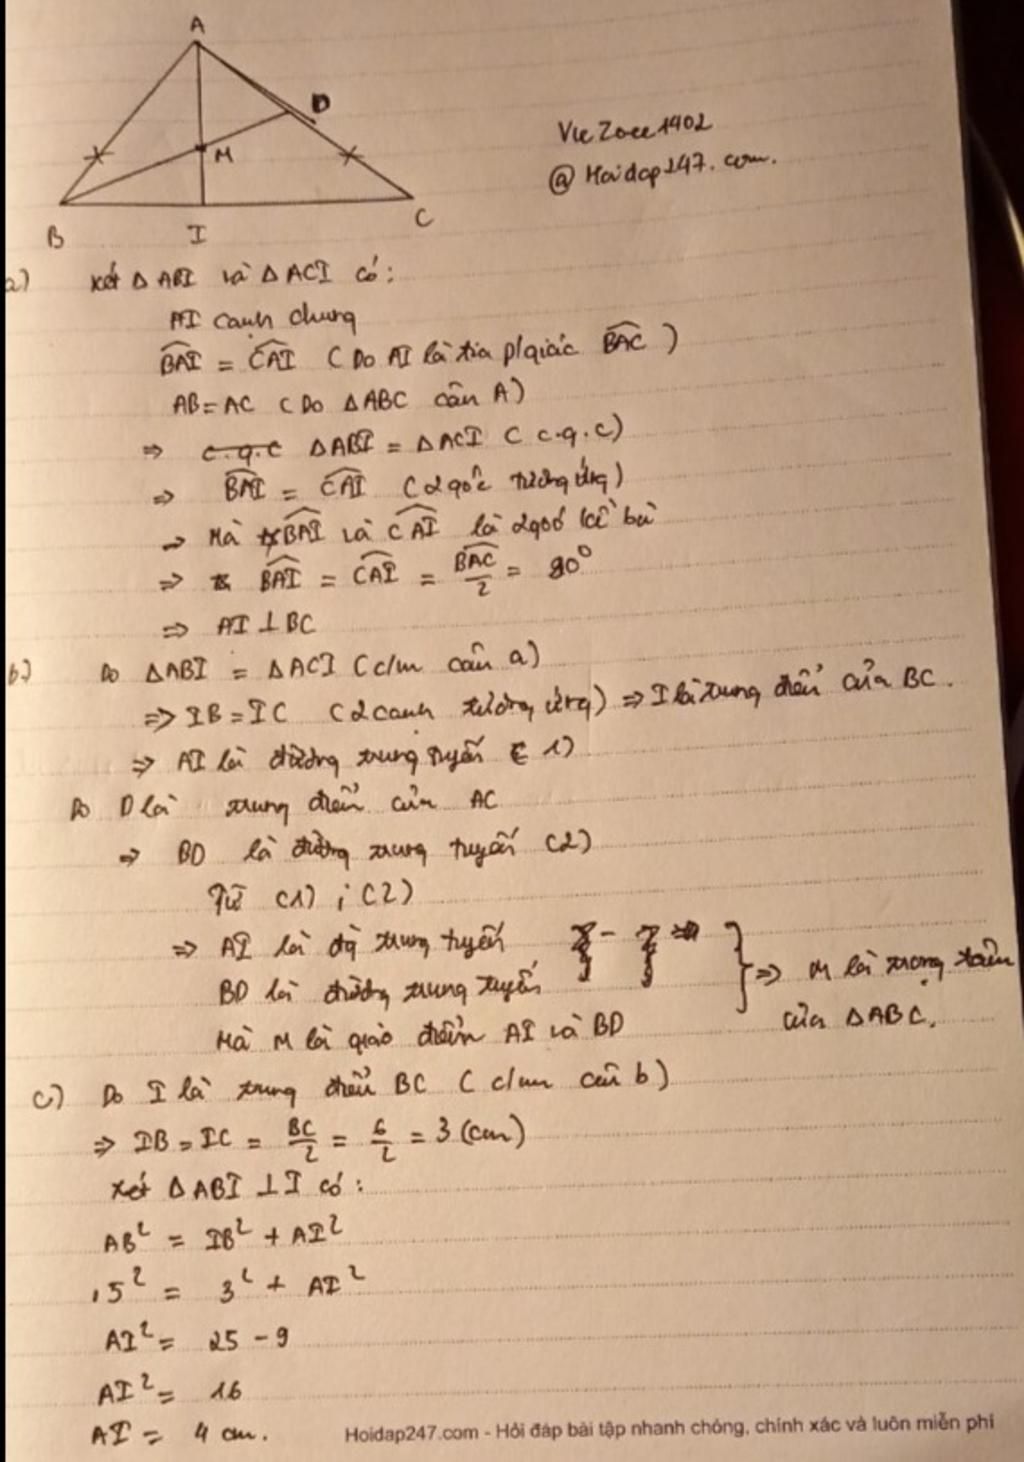 A
D
M
B
I
C
VieZoee1402
@Hoidap247.com.
a) Xét ΔABI và ΔACI có:
AI cạnh chung
BAI = CAI (Do AI là tia p/giác BAC)
AB=AC (Do ΔABC cân A)
⇒ c.g.c ΔABI = ΔACI (c.g.c)
⇒ BAI = CAI (2 góc tương ứng)
⇒ Mà BAI và CAI là 2 góc kề bù
⇒ BAI = CAI = BAC/2 = 90°
⇒ AI ⊥ BC
b) Do ΔABI = ΔACI (c/m câu a)
⇒ IB = IC (2 cạnh tương ứng) ⇒ I là trung điểm của BC.
⇒ AI là đường trung tuyến (1)
Do D là trung điểm của AC
⇒ BD là đường trung tuyến (2)
Từ (1) ; (2)
⇒ AI là đg trung tuyến
BD là đường trung tuyến
Mà M là giao điểm AI và BD
} ⇒ M là trọng tâm
của ΔABC.
c) Do I là trung điểm BC (c/m câu b)
⇒ IB = IC = BC/2 = 6/2 = 3 (cm)
Xét ΔABI ⊥ I có:
AB² = IB² + AI²
5² = 3² + AI²
AI² = 25 - 9
AI² = 16
AI = 4 cm.
Hoidap247.com - Hỏi đáp bài tập nhanh chóng, chính xác và luôn miễn phí